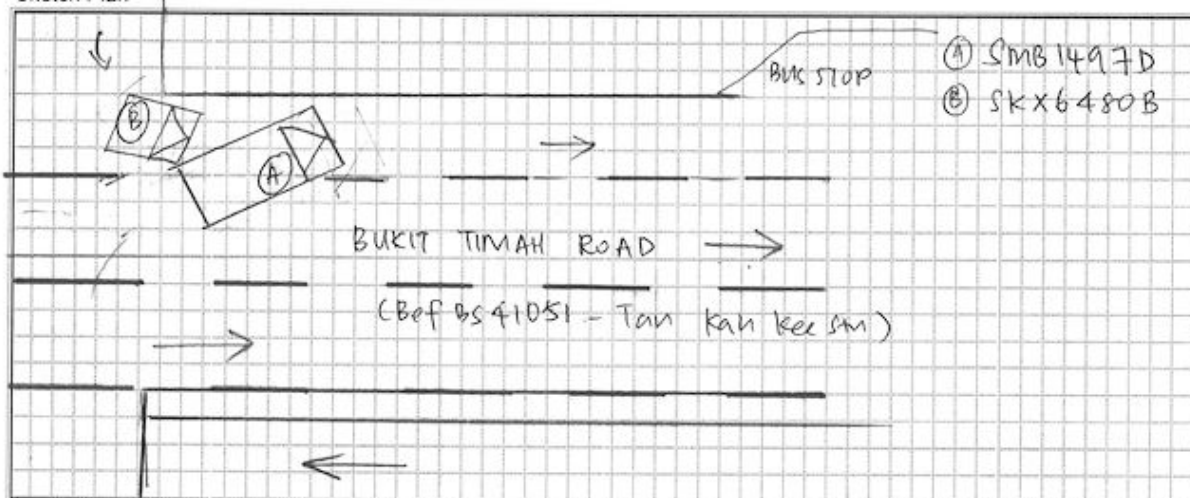 BUS STOP
Ⓐ SMB1497D
Ⓑ SKX6480B
B
A
BUKIT TIMAH ROAD
(Bef BS 41051 - Tan Kah Kee Stn)